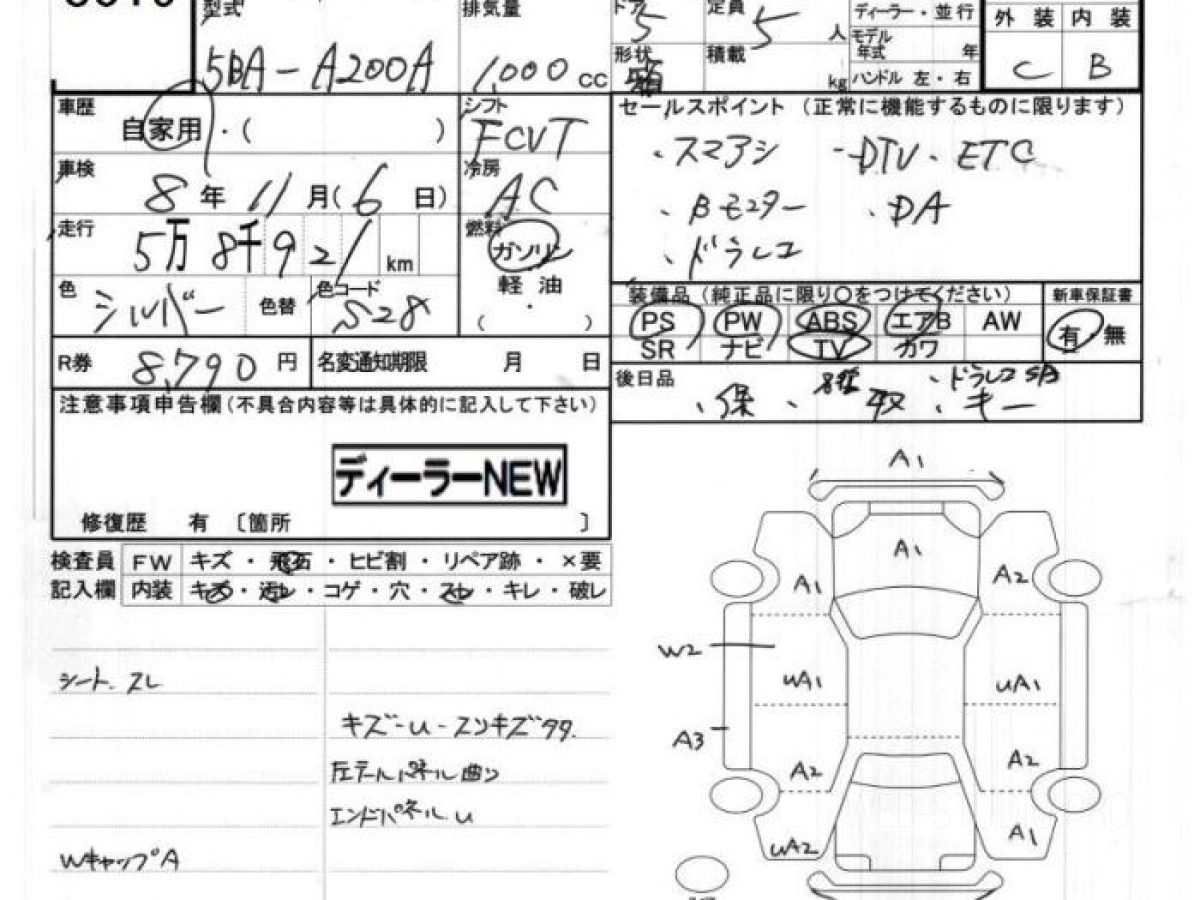 型式 5BA-A200A
排気量 1,000 cc
ドア 5
定員 5 人
形状 箱
積載 kg
ディーラー・並行
モデル年式 年
ハンドル 左・右
外装 内装
C B
車歴 自家用・( )
シフト FCVT
車検 8年 11月(6日)
冷房 AC
走行 5万8千921km
燃料 ガソリン
軽油
・
( )
色 シルバー 色替
色コード S28
R券 8,790円
名変通知期限 月 日
セールスポイント(正常に機能するものに限ります)
・スマアシ ・DTV・ETC
・Bモニター ・DA
・ドラレコ
装備品(純正品に限り〇をつけてください) 新車保証書
PS PW ABS エアB AW 有 無
SR ナビ TV カワ
後日品
・ドラレコ
・保・ 取・キー
注意事項申告欄(不具合内容等は具体的に記入して下さい)
ディーラーNEW
修復歴 有 〔箇所 〕
検査員 FW キズ・飛石・ヒビ割・リペア跡・×要
記入欄 内装 キズ・汚レ・コゲ・穴・スレ・キレ・破レ
シート スレ
キズ-U-スリキズタタ
左テールパネル曲リ
エンドパネル U
WキャップA
A1
A1
A1 A2
W2
UA1 UA1
A3
A2 A2
UA2 A1